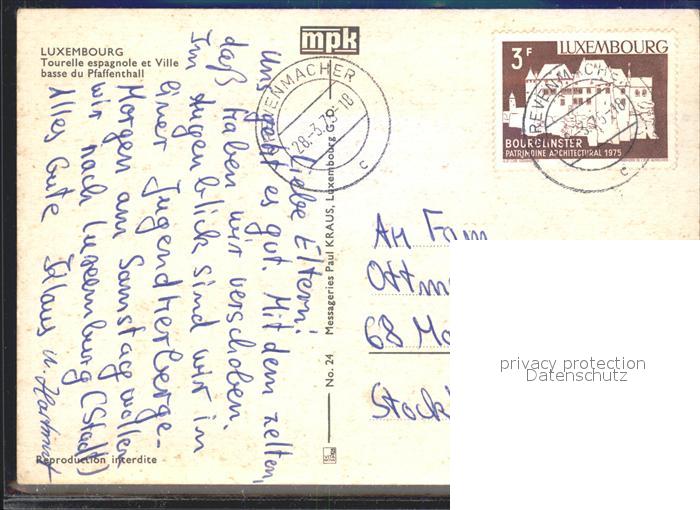 LUXEMBOURG
Tourelle espagnole et Ville
basse du Pfaffenthall
mpk
Liebe Eltern!
Uns geht es gut. Mit dem zelten,
daß haben wir verschoben.
Im Augenblick sind wir in
einer Jugendherberge.
Morgen am Samstag wollen
wir nach Luxemburg (Stadt)
Alles Gute Klaus u. Hartmut
Reproduction interdite
No. 24 Messageries Paul KRAUS, Luxembourg G.D.
GREVENMACHER
28.-3.75-18
C
3F LUXEMBOURG
BOURGLINSTER
PATRIMOINE ARCHITECTURAL 1975
GREVENMACHER
C
An Fam
Ottm
68 Ma
Stock
privacy protection
Datenschutz